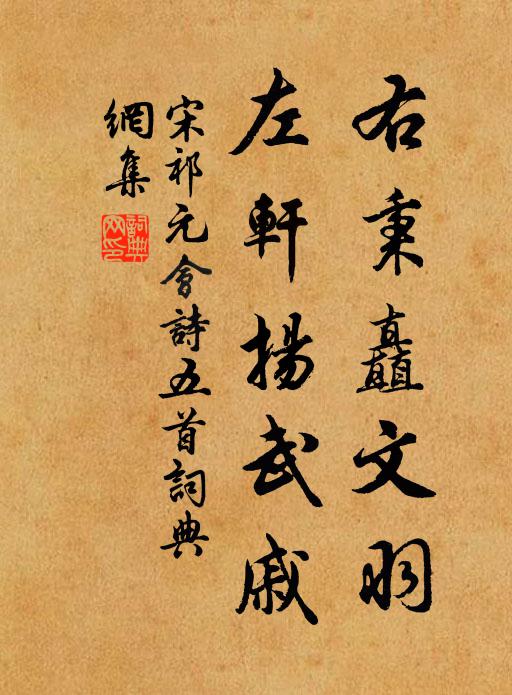 右秉矗文羽
左軒揚武戚
宋祁元會詩五首詞典
網集
詞典
网印